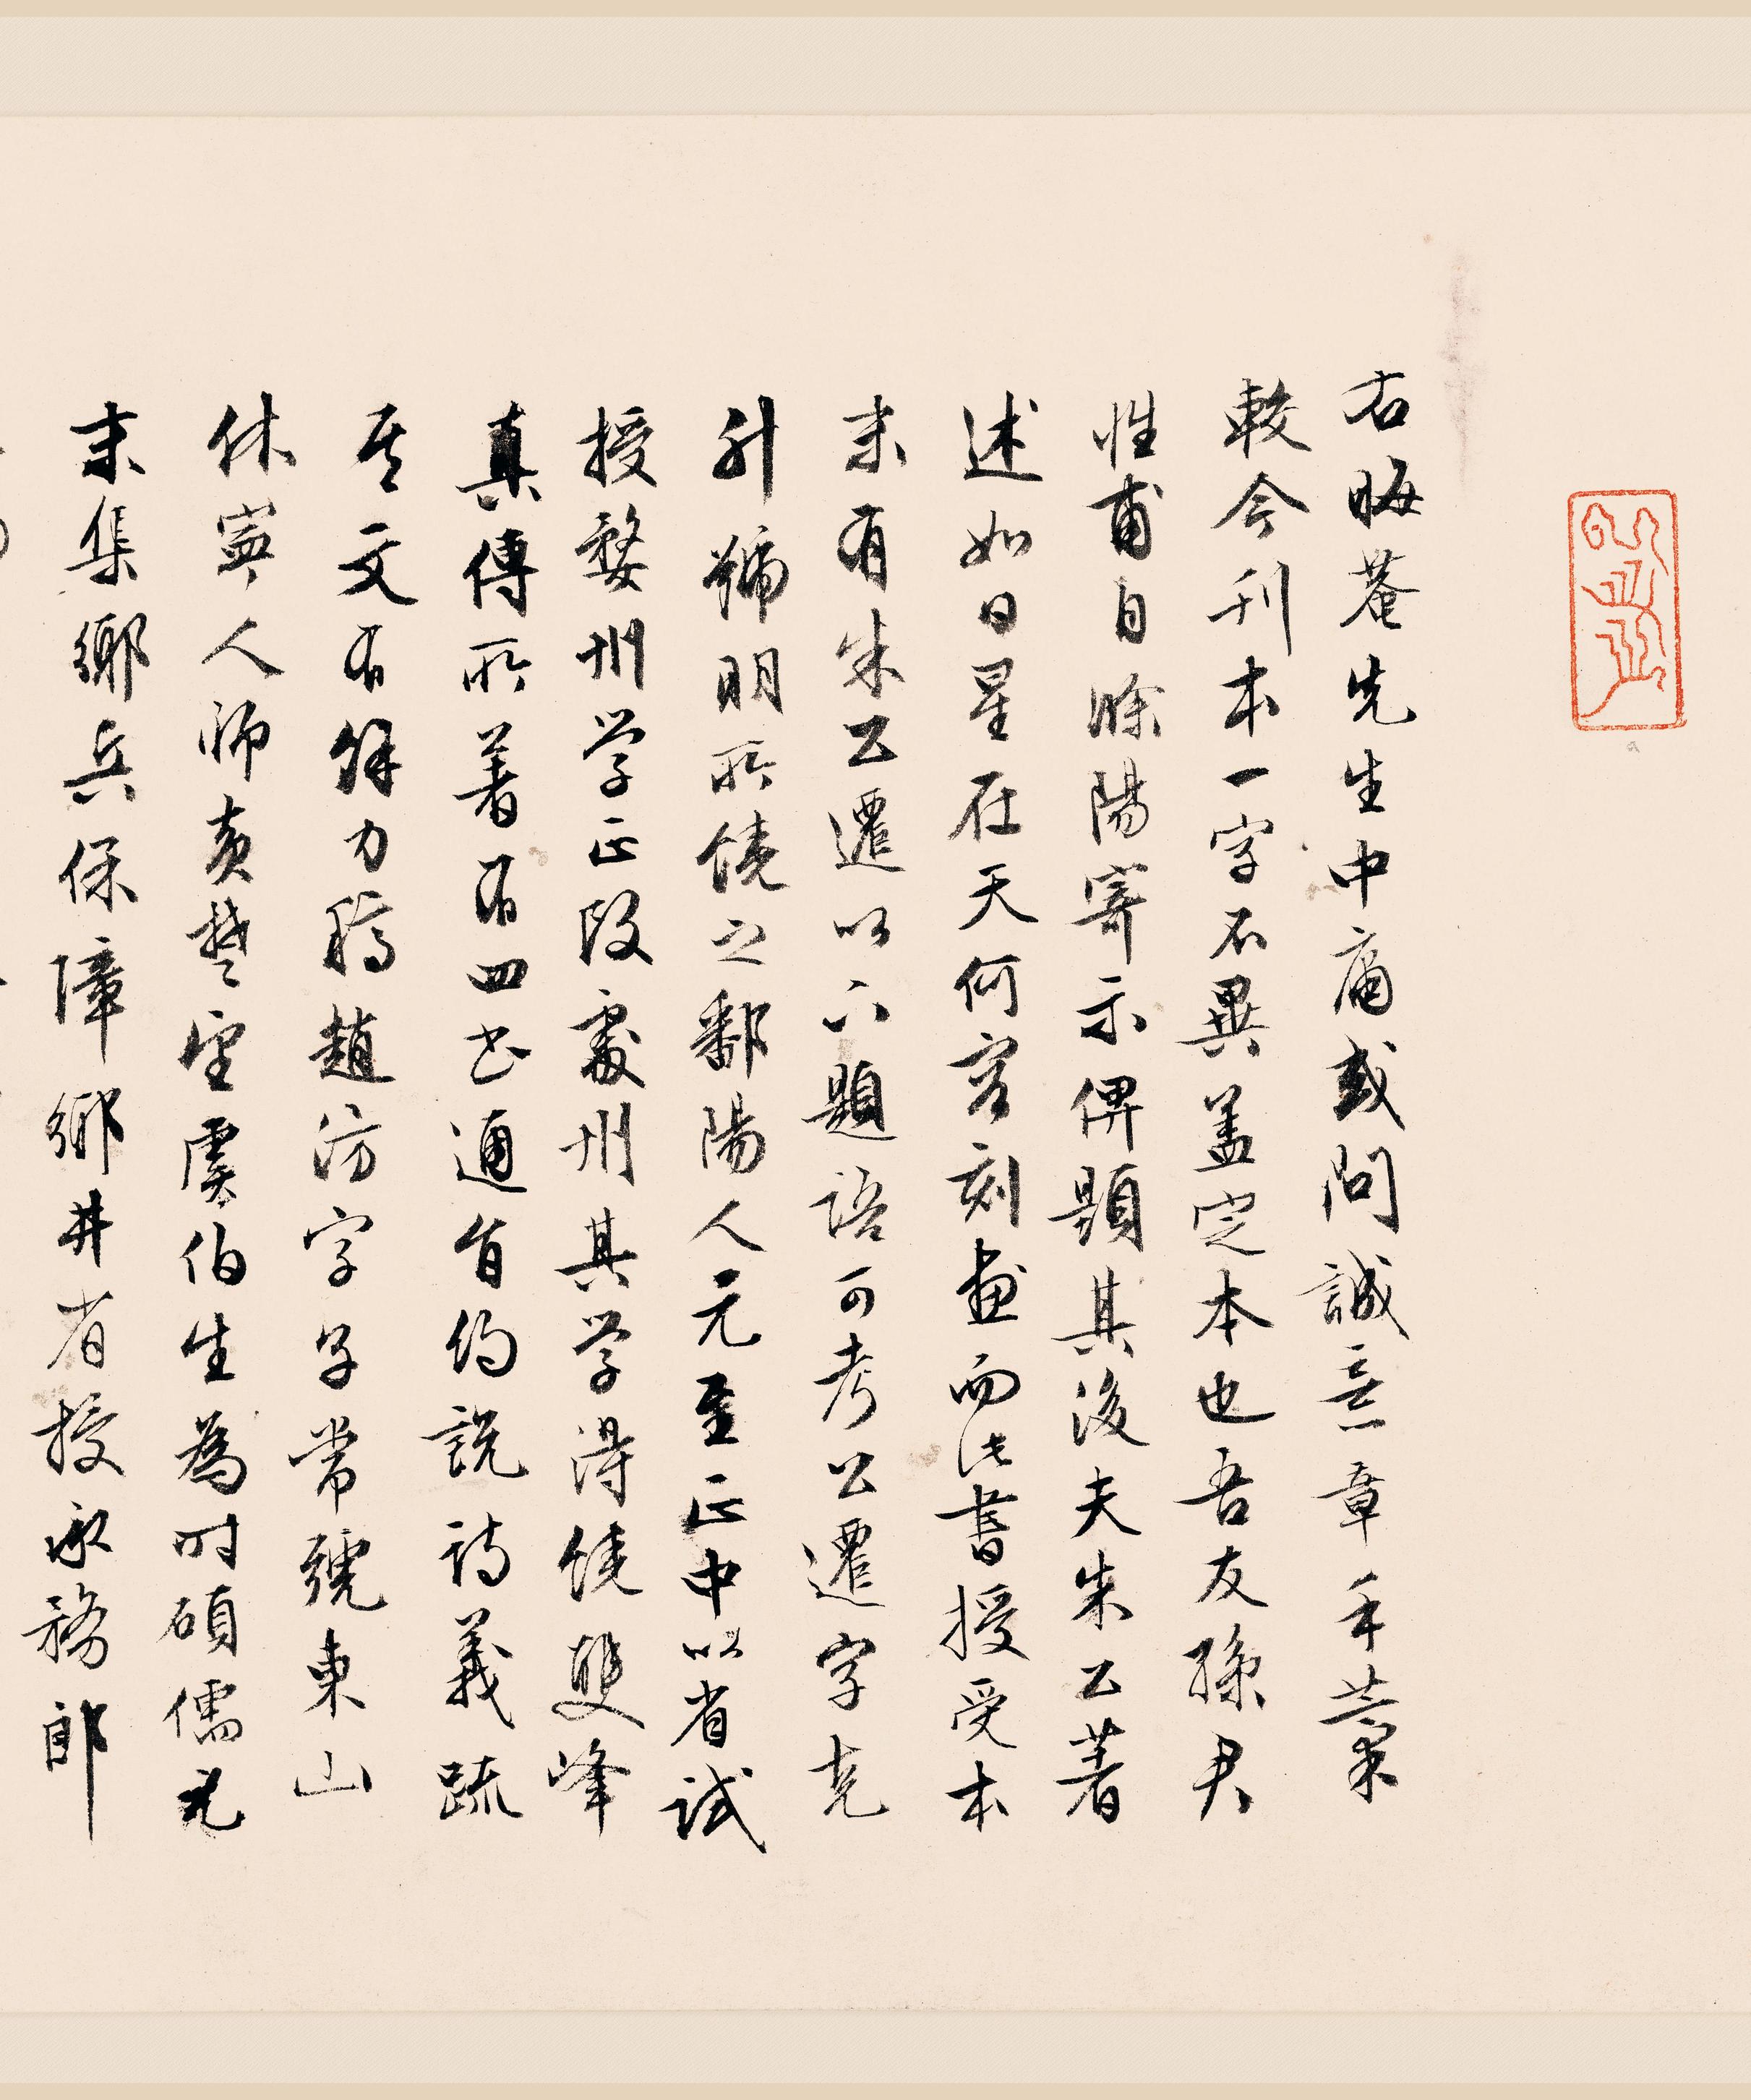 右晦菴先生中庸或問誠意章手藁
較今刊本一字不異盖定本也吾友孫君
性甫自滁陽寄示俾題其後夫朱公著
述如日星在天何容刻畫而此書授受本
末有朱公遷以下題語可考公遷字克
升號明所饒之鄱陽人元至正中以省試
授婺州学正改處州其学得饒雙峰
真傳所著有四书通旨約説詩義疏
其文有餘力藁趙汸字子常號東山
休寧人師黃楚望虞伯生為时碩儒元
末集鄉兵保障鄉井省授承務郎